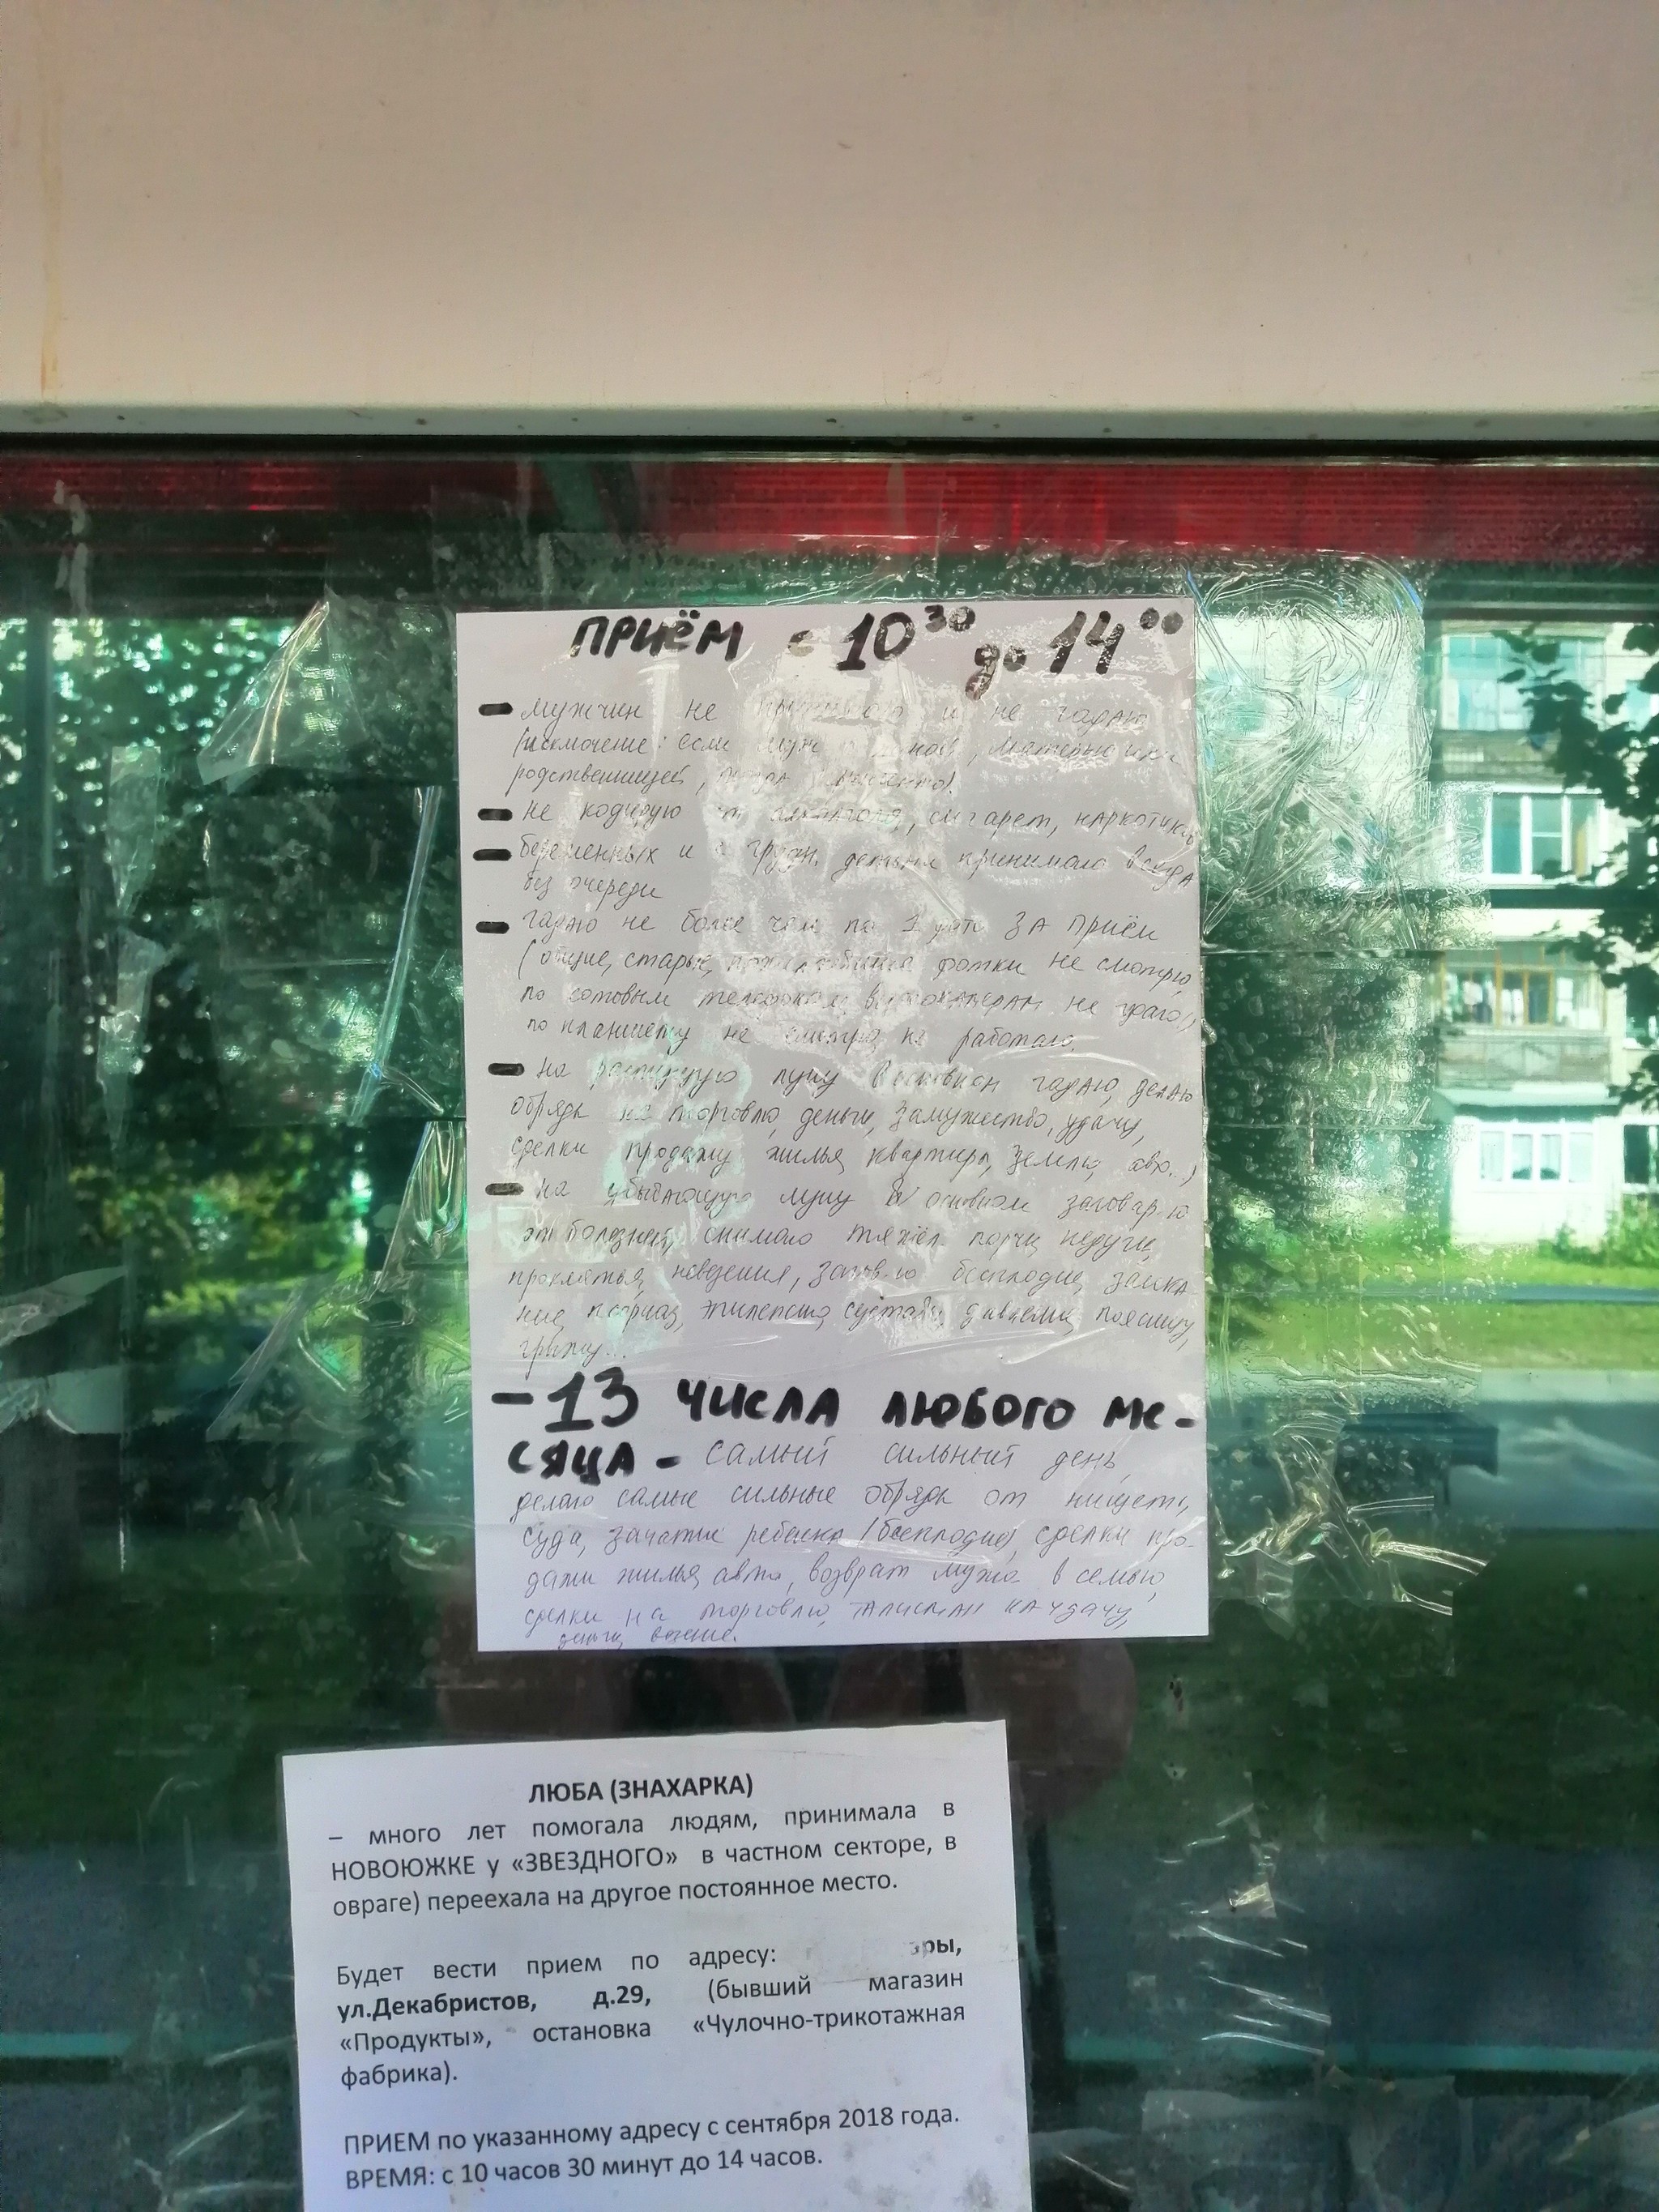 ПРИЁМ с 10³⁰ до 14⁰⁰
- мужчин не принимаю и не гадаю
(исключение: если муж с женой, матерью или
родственницей,
- не кодирую от алкоголя, сигарет, наркотиков
- беременных и с грудн. детьми принимаю всегда
без очереди
- гадаю не более чем по 1 фото ЗА ПРИЁМ
(общие, старые, фотки не смотрю,
по сотовым телефонам, не гадаю,
по планшету не смотрю, не работаю.
- на растущую луну в основном гадаю, делаю
обряды на торговлю, деньги, замужество, удачу,
сделки продажу жилья, квартиры, землю, авто..)
- на убывающую луну в основном заговар-ю
от болезней, снимаю тяжёл. порчи, недуги,
проклятья, невезения, загов-ю бесплодие, заика
ние, псориаз, эпилепсию, суставы, давление, поясницу,
грыжу...
- 13 ЧИСЛА ЛЮБОГО МЕ-
СЯЦА - самый сильный день,
делаю самые сильные обряды от нищеты,
суда, зачатие ребёнка (бесплодие), сделки про-
дажи жилья, авто, возврат мужа в семью,
сделки на торговлю, ТАЛИСМАН НА УДАЧУ,
деньги, везение.
ЛЮБА (ЗНАХАРКА)
– много лет помогала людям, принимала в
НОВОЮЖКЕ у «ЗВЕЗДНОГО» в частном секторе, в
овраге) переехала на другое постоянное место.
Будет вести прием по адресу: ры,
ул.Декабристов, д.29, (бывший магазин
«Продукты», остановка «Чулочно-трикотажная
фабрика).
ПРИЕМ по указанному адресу с сентября 2018 года.
ВРЕМЯ: с 10 часов 30 минут до 14 часов.